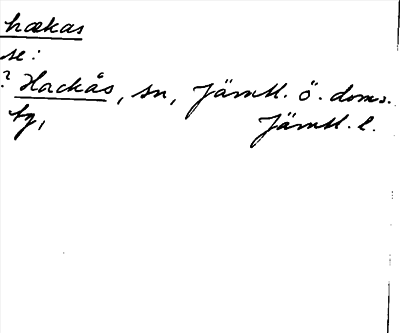 hækas
se:
? Hackås, sn, Jämtl. ö. doms.
tg, Jämtl. l.